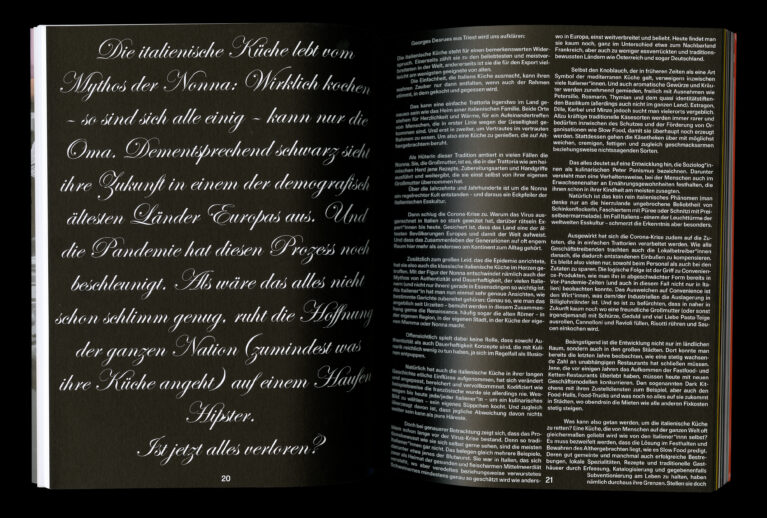 Die italienische Küche lebt vom
Mythos der Nonna: Wirklich kochen
– so sind sich alle einig – kann nur die
Oma. Dementsprechend schwarz sieht
ihre Zukunft in einem der demografisch
ältesten Länder Europas aus. Und
die Pandemie hat diesen Prozess noch
beschleunigt. Als wäre das alles nicht
schon schlimm genug, ruht die Hoffnung
der ganzen Nation (zumindest was
ihre Küche angeht) auf einem Haufen
Hipster.
Ist jetzt alles verloren?
20
Georges Desrues aus Triest wird uns aufklären:
Die italienische Küche steht für einen bemerkenswerten Wider-
spruch. Einerseits zählt sie zu den beliebtesten und meistver-
breiteten in der Welt, andererseits ist sie die für den Export viel-
leicht am wenigsten geeignete von allen.
Die Einfachheit, die Italiens Küche ausmacht, kann ihren
wahren Zauber nur dann entfalten, wenn auch der Rahmen
stimmt, in dem gekocht und gegessen wird.
Das kann eine einfache Trattoria irgendwo im Land ge-
nauso sein wie das Heim einer italienischen Familie. Beide Orte
stehen für Herzlichkeit und Wärme, für ein Aufeinandertreffen
von Menschen, die in erster Linie wegen der Geselligkeit ge-
kommen sind. Und erst in zweiter, um Vertrautes im vertrauten
Rahmen zu essen. Um also eine Küche zu genießen, die auf Alt-
hergebrachtem beruht.
Als Hüterin dieser Tradition ambiert in vielen Fällen die
Nonna. Sie, die Großmutter, ist es, die in der Trattoria wie am hei-
mischen Herd jene Rezepte, Zubereitungsarten und Handgriffe
ausführt und weitergibt, die sie einst selbst von ihrer eigenen
Großmutter übernommen hat.
Über die Jahrzehnte und Jahrhunderte ist um die Nonna
ein regelrechter Kult entstanden – und daraus ein Eckpfeiler der
italienischen Esskultur.
Dann schlug die Corona-Krise zu. Warum das Virus aus-
gerechnet in Italien so stark gewütet hat, darüber rätseln Ex-
pert*innen bis heute. Gesichert ist, dass das Land eine der äl-
testen Bevölkerungen Europas und damit der Welt aufweist.
Und dass das Zusammenleben der Generationen auf oft engem
Raum hier mehr als anderswo am Kontinent zum Alltag gehört.
Zusätzlich zum großen Leid, das die Epidemie anrichtete,
hat sie also auch die klassische italienische Küche im Herzen ge-
troffen. Mit der Figur der Nonna entschwindet nämlich auch der
Mythos von Authentizität und Dauerhaftigkeit, der vielen Italie-
nern (und nicht nur ihnen) gerade in Essensdingen so wichtig ist.
Als Italiener*in hat man nun einmal sehr genaue Ansichten, wie
bestimmte Gerichte zubereitet gehören. Genau so, wie man das
angeblich seit Urzeiten – bemüht werden in diesem Zusammen-
hang gerne die Renaissance, häufig sogar die alten Römer – in
der eigenen Region, in der eigenen Stadt, in der Küche der eige-
nen Mamma oder Nonna macht.
Offensichtlich spielt dabei keine Rolle, dass sowohl Au-
thentizität als auch Dauerhaftigkeit Konzepte sind, die mit Kuli-
narik reichlich wenig zu tun haben, ja sich im Regelfall als Illusio-
nen entpuppen.
Natürlich hat auch die italienische Küche in ihrer langen
Geschichte etliche Einflüsse aufgenommen, hat sich verändert
und angepasst, bereichert und vervollkommnet. Kodifiziert wie
beispielsweise die französische wurde sie allerdings nie. Wes-
wegen bis heute jede/jeder Italiener*in – um ein kulinarisches
Bild zu wählen – sein eigenes Süppchen kocht. Und zugleich
überzeugt davon ist, dass jegliche Abweichung davon nichts
weiter sein kann als pure Häresie.
Doch bei genauerer Betrachtung zeigt sich, dass das Pro-
blem schon lange vor dem Virus bestand. Denn so tradi-
tionsbewusst wie sie sich selbst gerne sehen, sind die meisten
Italiener*innen gar nicht. Das belegen gleich mehrere Beispiele,
darunter etwa jenes der Blutwurst. Sie war in Italien, das sich
gerne als Heimat der gesunden und fleischarmen Mittelmeerdiät
präsentiert, wo aber veredeltes beziehungsweise verwurstetes
Schweinernes mindestens genau so geschätzt wird wie anders-
wo in Europa, einst weitverbreitet und beliebt. Heute findet man
sie kaum noch, ganz im Unterschied etwa zum Nachbarland
Frankreich, aber auch zu weniger essverrückten und traditions-
bewussten Ländern wie Österreich und sogar Deutschland.
Selbst den Knoblauch, der in früheren Zeiten als eine Art
Symbol der mediterranen Küche galt, verweigern inzwischen
viele Italiener*innen. Und auch aromatische Gewürze und Kräu-
ter werden zunehmend gemieden, freilich mit Ausnahmen wie
Petersilie, Rosmarin, Thymian und dem quasi identitätsstiften-
den Basilikum (allerdings auch nicht im ganzen Land). Estragon,
Dille, Kerbel und Minze jedoch sucht man vielerorts vergeblich.
Allzu kräftige traditionelle Käsesorten werden immer rarer und
bedürfen inzwischen des Schutzes und der Förderung von Or-
ganisationen wie Slow Food, damit sie überhaupt noch erzeugt
werden. Stattdessen gehen die Käsetheken über mit möglichst
weichen, cremigen, fettigen und zugleich geschmacksarmen
beziehungsweise nichtssagenden Sorten.
Das alles deutet auf eine Entwicklung hin, die Soziolog*in-
nen als kulinarischen Peter Panismus bezeichnen. Darunter
versteht man eine Verhaltensweise, bei der Menschen auch im
Erwachsenenalter an Ernährungsgewohnheiten festhalten, die
ihnen schon in ihrer Kindheit am meisten zusagten.
Natürlich ist das kein rein italienisches Phänomen (man
denke nur an die hierzulande ungebrochene Beliebtheit von
Schinkenfleckerln, Faschiertem mit Püree oder Schnitzl mit Prei-
selbeermarmelade). Im Fall Italiens – einem der Leuchttürme der
weltweiten Esskultur – schmerzt die Erkenntnis aber besonders.
Ausgewirkt hat sich die Corona-Krise zudem auf die Zu-
taten, die in einfachen Trattorien verarbeitet werden. Wie alle
Geschäftstreibenden trachten auch die Lokalbetreiber*innen
danach, die dadurch entstandenen Einbußen zu kompensieren.
Es bleibt also vielen nur, sowohl beim Personal als auch bei den
Zutaten zu sparen. Die logische Folge ist der Griff zu Convenien-
ce Produkten, wie man ihn in abgeschwächter Form bereits in
Vor-Pandemie-Zeiten (und auch in diesem Fall nicht nur in Ita-
lien) beobachten konnte. Das Ausweichen auf Convenience ist
den Wirt*innen, was dem/der Industriellen die Auslagerung in
Billiglohnländer ist. Und so ist zu befürchten, dass in naher
Zukunft kaum noch wo eine freundliche Großmutter (oder sonst
irgendjemand) mit Schürze, Geduld und viel Liebe Pasta-Teige
auserollen, Cannelloni und Ravioli füllen, Risotti rühren und Sau-
cen einkochen wird.
Beängstigend ist die Entwicklung nicht nur im ländlichen
Raum, sondern auch in den großen Städten. Dort konnte man
bereits die letzten Jahre beobachten, wie eine stetig wachsen-
de Zahl an unabhängigen Restaurants hat schließen müssen.
Jene, die vor einigen Jahren das Aufkommen der Fastfood- und
Ketten-Restaurants überlebt haben, müssen heute mit neuen
Geschäftsmodellen konkurrieren. Den sogenannten Dark Kit-
chens mit ihren Zustelldiensten zum Beispiel, aber auch den
Food-Halls, Food-Trucks und was noch so alles auf sie zukommt
in Städten, wo obendrein die Mieten wie alle anderen Fixkosten
stetig steigen.
Was kann also getan werden, um die italienische Küche
zu retten? Eine Küche, die von Menschen auf der ganzen Welt oft
gleichermaßen geliebt wird wie von den Italiener*inn selbst?
Es muss bezweifelt werden, dass die Lösung im Festhalten und
Bewahren des Althergebrachten liegt, wie es Slow Food predigt.
Deren gut gemeinte und manchmal auch erfolgreiche Bestre-
bungen, lokale Spezialitäten, Rezepte und traditionelle Gast-
häuser durch Erfassung, Katalogisierung und gegebenenfalls
Subventionierung am Leben zu halten, haben
nämlich durchaus ihre Grenzen. Stellen sie doch
21